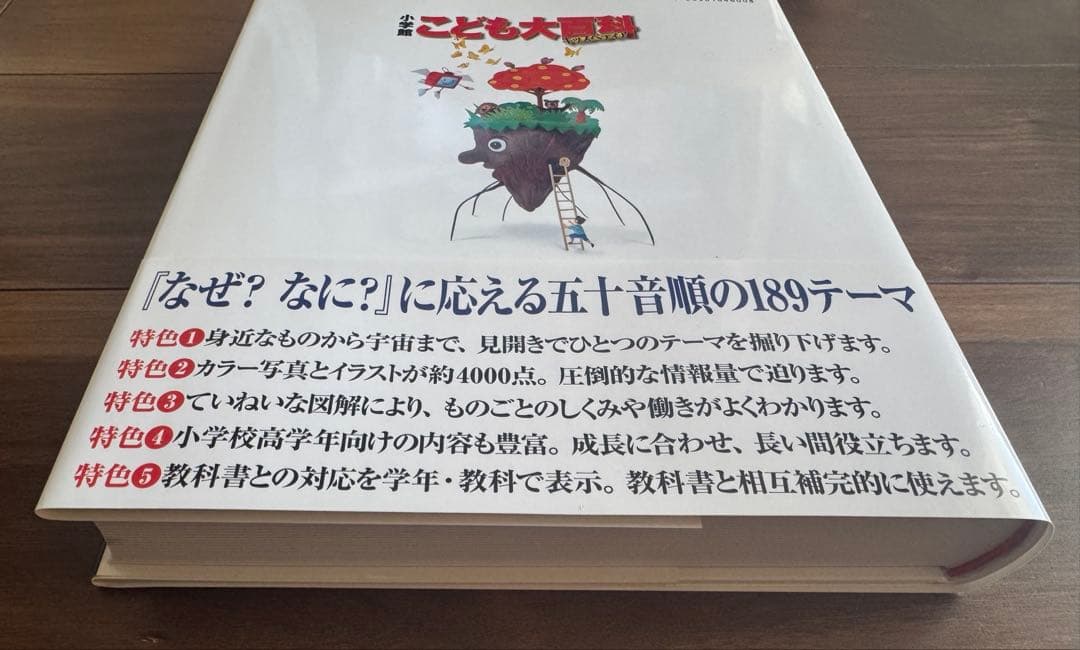 小学館
こども大百科
『なぜ? なに?』に応える五十音順の189テーマ
特色❶身近なものから宇宙まで、見開きでひとつのテーマを掘り下げます。
特色❷カラー写真とイラストが約4000点。圧倒的な情報量で迫ります。
特色❸ていねいな図解により、ものごとのしくみや働きがよくわかります。
特色❹小学校高学年向けの内容も豊富。成長に合わせ、長い間役立ちます。
特色❺教科書との対応を学年・教科で表示。教科書と相互補完的に使えます。